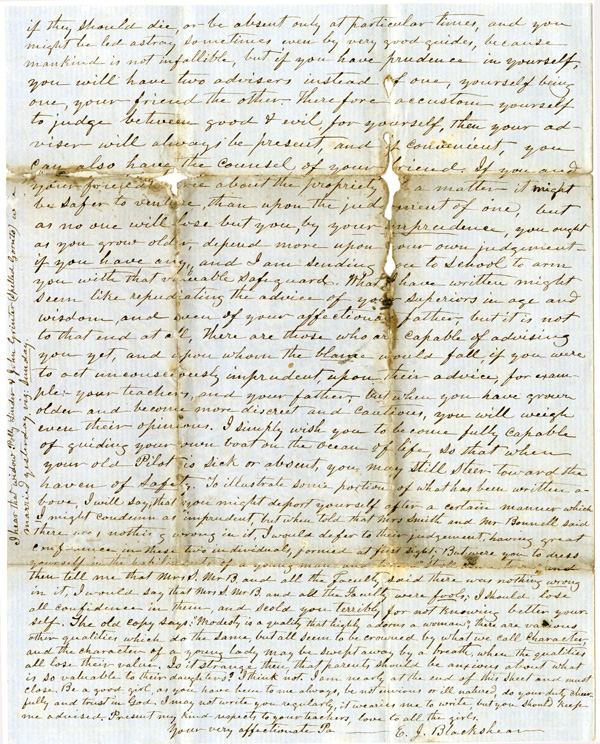 if they should die, or be absent only at particular times, and you
might be led astray sometimes even by very good guides, because
mankind is not infallible, but if you have prudence in yourself,
you will have two advisers instead of one, yourself being
one, your friend the other. Therefore accustom yourself
to judge between good & evil, for yourself, then your ad-
viser will always be present, and if convenient you
can also have the counsel of your friend. If you and
your friend about the propriety a matter it might
be safer to venture, than upon the judgment of one, but
as no one will lose but you, by your imprudence, you ought
as you grow older, depend more upon your own judgment
if you leave any, and I am sending to school to arm
you with that valuable safeguard. What I have written might
seem like repudiating the advice of your superiors in age and
wisdom, and even of your affectionate father, but it is not
to that end at all, There are those who are capable of advising
you yet, and upon whom the blame would fall, if you were
to act unconsciously imprudent, upon their advice, for exam-
ple: your teachers, and your father, but when you have grown
older and become more discreet and cautious, you will weigh
even their opinions. I simply wish you to become fully capable
of guiding your own boat on the Ocean of life, so that when
your old Pilot is sick or absent, you may still steer toward the
haven of safety. To illustrate some portion of what has been written a-
bove, I will say, that you might deport yourself after a certain manner which
I might condemn as imprudent, but when told that Mrs Smith and Mr Bonnell said
there was nothing wrong in it, I would defer to their judgement, having great
confidence in these two individuals, formed at first sight; But were you to dress
yourself in the of a young man, and and
then tell me that Mrs. S. Mr B and all the Faculty said there was nothing wrong
in it, I would say that Mrs S. Mr B. and all the Faculty were fools, I should lose
all confidence in them, and scold you terribly for not knowing better your-
self. The old copy says: "Modesty is a quality that highly adorns a woman"; there are various
other qualities which do the same, but all seem to be crowned by what we call Character,
and the character of a young lady may be swept away by a breath, when the qualities
all lose their value. Is it strange then that parents should be anxious about what
is so valuable to their daughters? I think not. I am nearly at the end of this sheet and must
close. Be a good girl, as you have been to me always, be not envious or ill natured, do your duty cheer-
fully and trust in God. I may not write you regularly, it wearies me to write, but you should keep
me advised. Present my kind respects to your teachers, love to all the girls.
Your very affectionate Pa
E. J. Blackshear
I hear that widow Polly & John married yesterday, say: Sunday